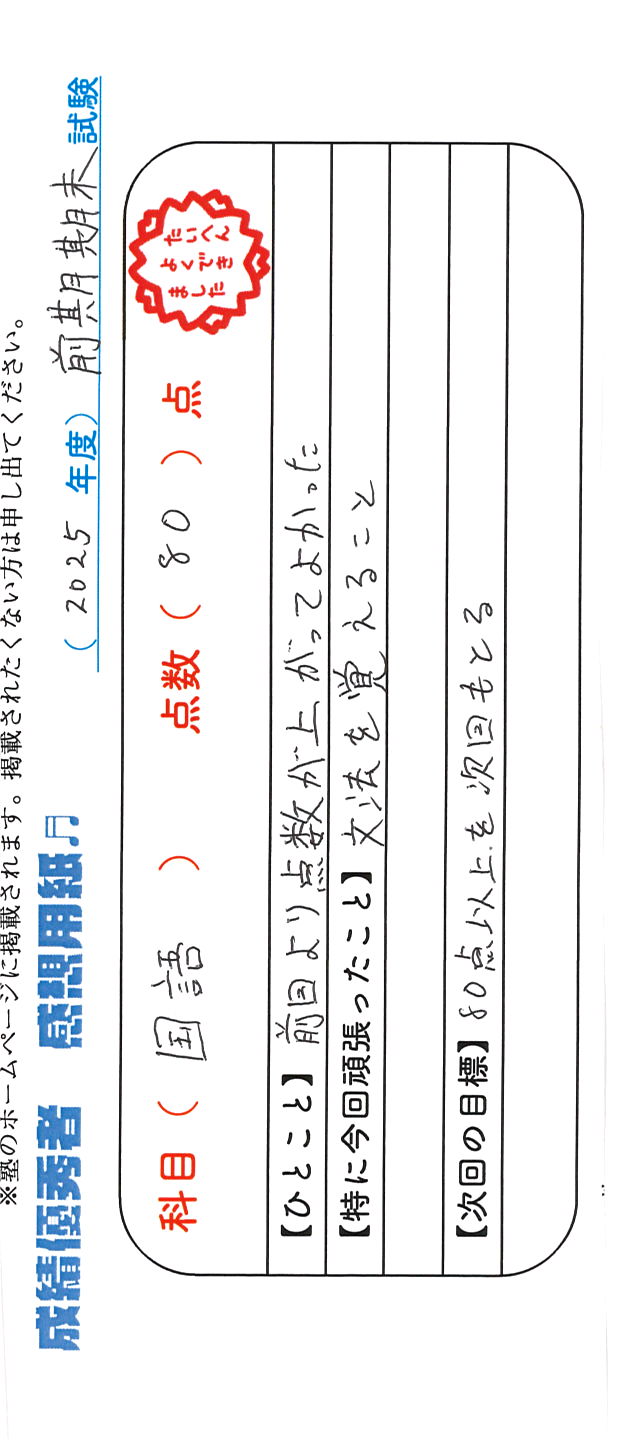 ※塾のホームページに掲載されます。掲載されたくない方は申し出てください。
成績優秀者 感想用紙♬ (2025 年度) 前期期末 試験
科目 ( 国語 ) 点数 ( 80 ) 点
たいへん
よくでき
ました
【ひとこと】前回より点数が上がってよかった
【特に今回頑張ったこと】文法を覚えること
【次回の目標】80点以上を次回もとる